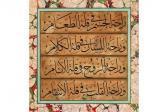 وراحة الجسم في قلة الطعام
وراحة اللسان في قلة الكلام
وراحة الروح في قلة الآثام
وراحة القلب في قلة الاهتمام